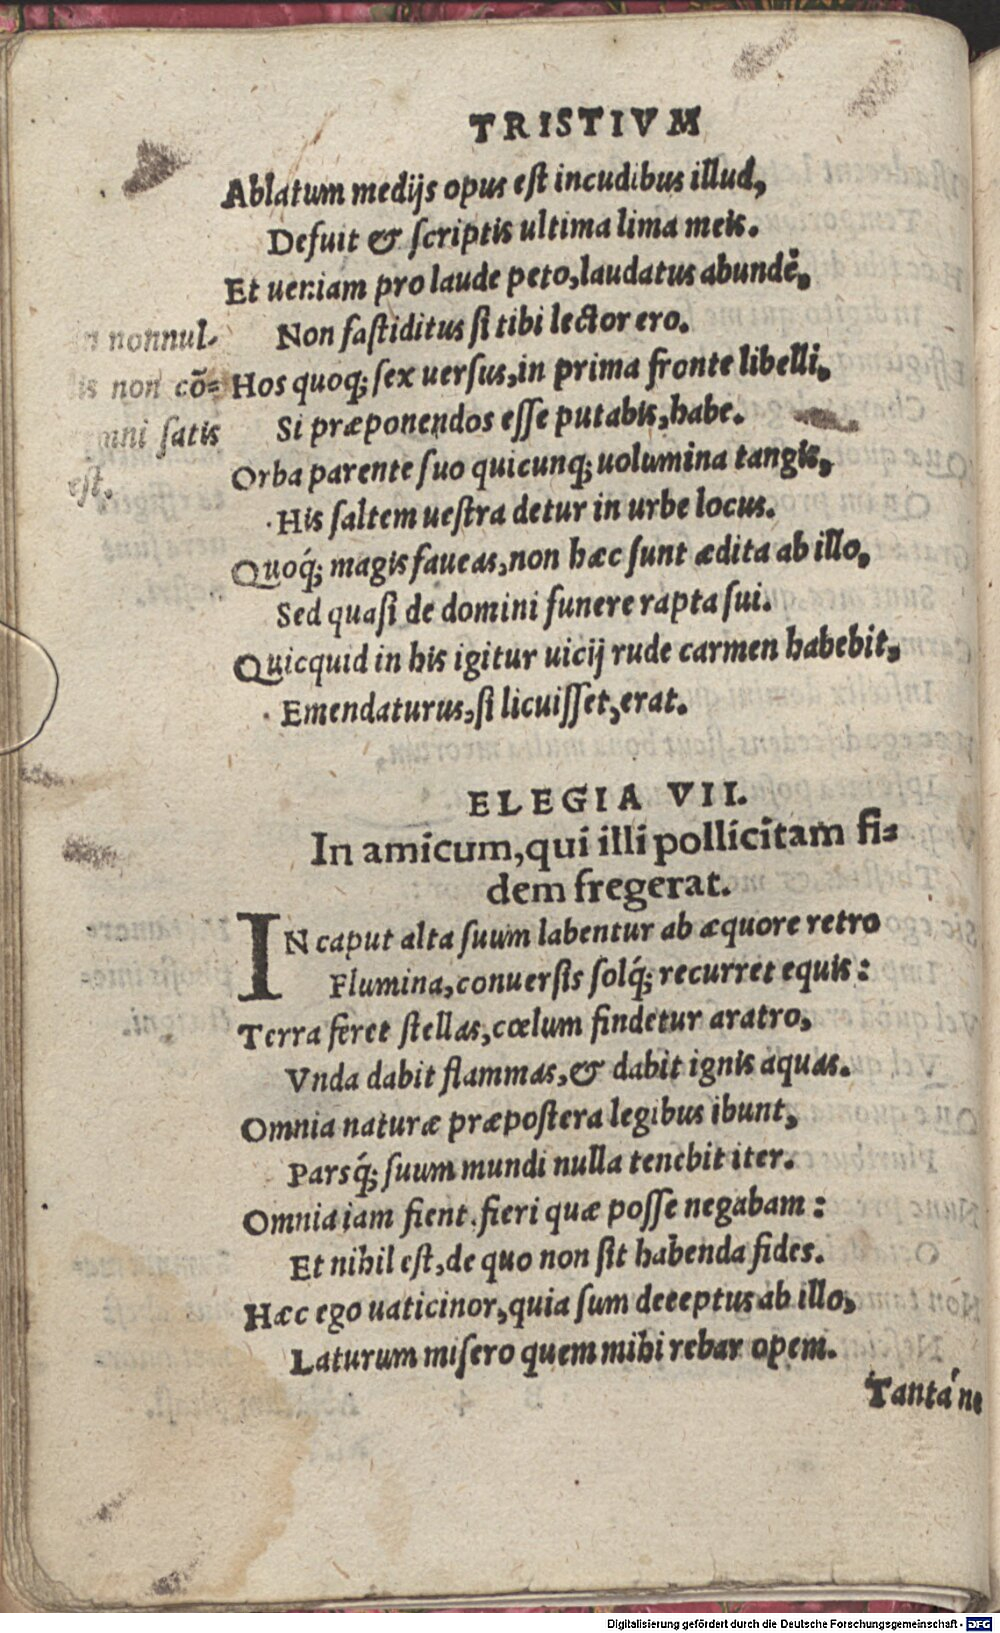 TRISTIVM
Ablatum medijs opus eſt incudibus illud,
Defuit & ſcriptis ultima lima meis.
Et ueniam pro laude peto, laudatus abundè,
Non faſtiditus ſi tibi lector ero.
Hos quoq; ſex uerſus, in prima fronte libelli,
Si præponendos eſſe putabis, habe.
Orba parente ſuo quicunq; uolumina tangis,
His ſaltem ueſtra detur in urbe locus.
Quoq́; magis faueas, non hæc ſunt ædita ab illo,
Sed quaſi de domini funere rapta ſui.
Quicquid in his igitur uicij rude carmen habebit,
Emendaturus, ſi licuiſſet, erat.
nonnul-
non cō=
ſatis
eſt.
ELEGIA VII.
In amicum, qui illi pollicitam fi=
dem fregerat.
IN caput alta ſuum labentur ab æquore retro
Flumina, conuerſis ſolq́; recurret equis:
Terra feret ſtellas, cœlum findetur aratro,
Vnda dabit flammas, & dabit ignis aquas.
Omnia naturæ præpoſtera legibus ibunt,
Parsq́; ſuum mundi nulla tenebit iter.
Omnia iam fient, fieri quæ poſſe negabam:
Et nihil eſt, de quo non ſit habenda fides.
Hæc ego uaticinor, quia ſum deeeptus ab illo,
Laturum miſero quem mihi rebar opem.
Tantá ne
Digitalisierung gefördert durch die Deutsche Forschungsgemeinschaft - DFG